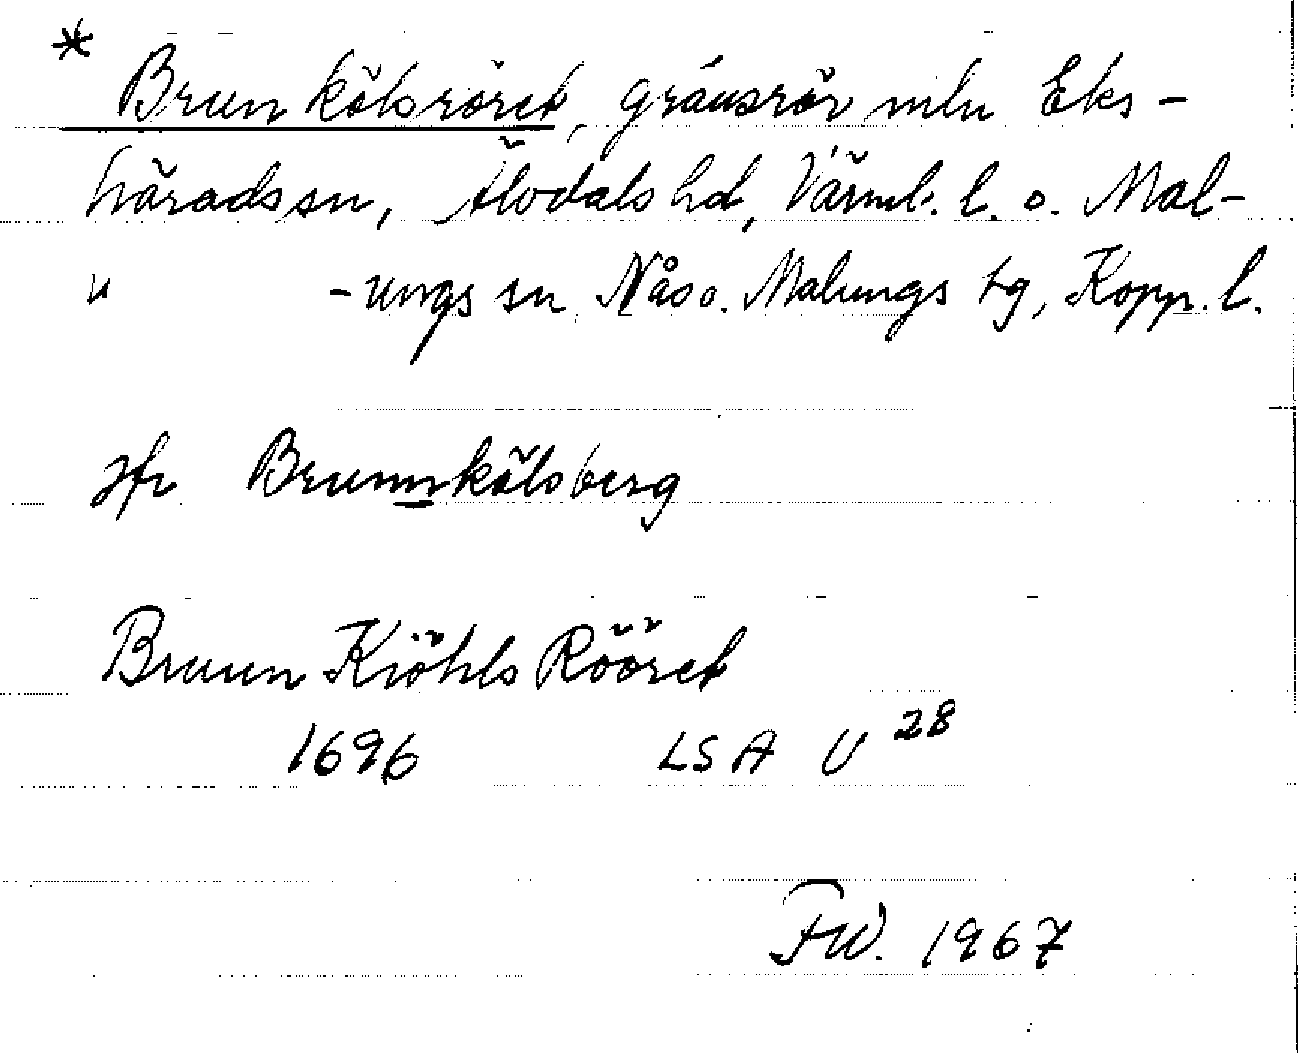 * Brunkölsröret, gränsrör mln Eks-
häradssn, Älvdals hd, Värml. l. o. Mal-
" -ungs sn Nås o. Malungs tg, Kopp. l.
jfr Brunnkölsberg
Bruun Kiöhls Rööret
1696 LSA U 28
FW. 1967